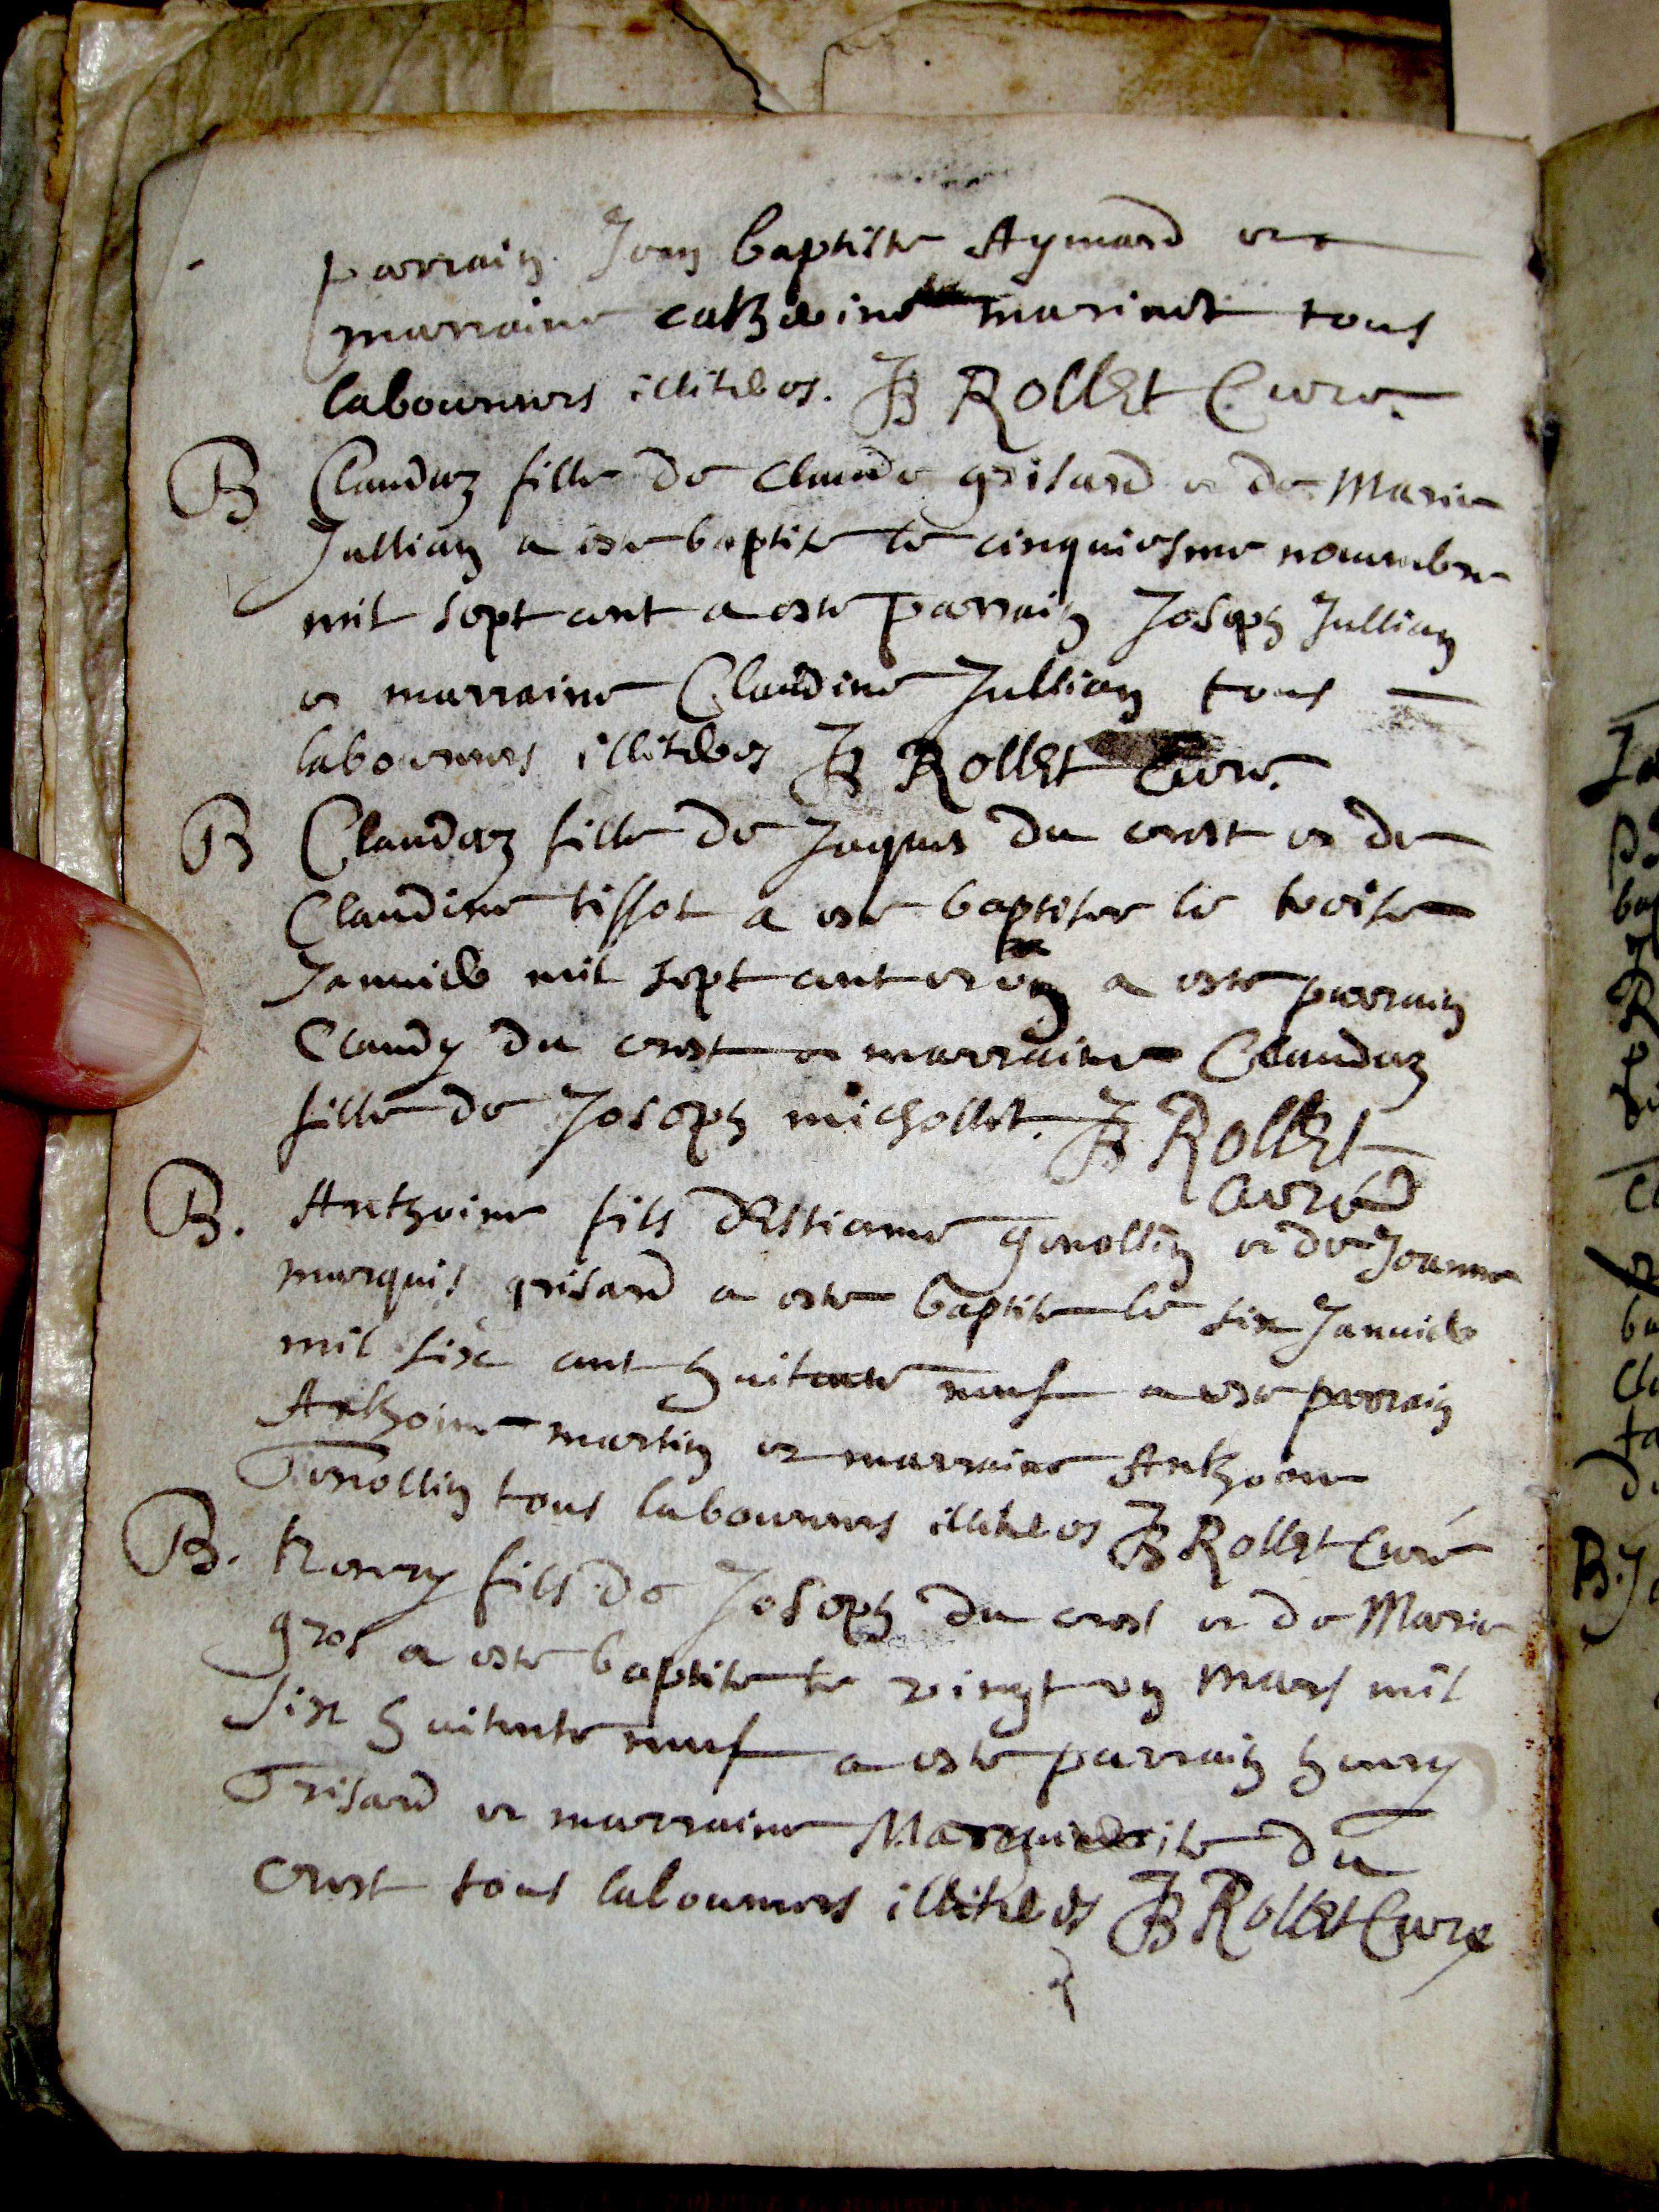 parrain Jean baptiste Aymard et
marraine catherine mariact tous
laboureurs illiteres. JB ROllEt Cure.
B Claudaz fille de Claude grisard et de Marie
Jullian a este baptise le cinquiesme nouembre
mil sept cent a este parrain Joseph Jullian
et marraine Claudine Jullian tous
laboureurs illiteres JB ROllEt Cure.
B Claudaz fille de Jaques du crest et de
Claudine tissot a este baptisee le treise
Januier mil sept cent et un a este parrain
Claudy du crest et marraine Claudaz
fille de Joseph michollet. JB ROllEt
curé
B. Anthoine fils dEstienne genollin et de Jeanne
marquis grisard a este baptise le six Januier
mil six cent huitante neuf a este parrain
Anthoine martin et marraine Anthoine
Genollin tous laboureurs illiteres JB ROllEt Curé
B. henry fils de Joseph du crest et de Marie
gros a este baptise le vingt un Mars mil
six huitente neuf a este parrain henry
Grisard et marraine Marguerite du
crest tous laboureurs illiteres JB ROllEt Cure